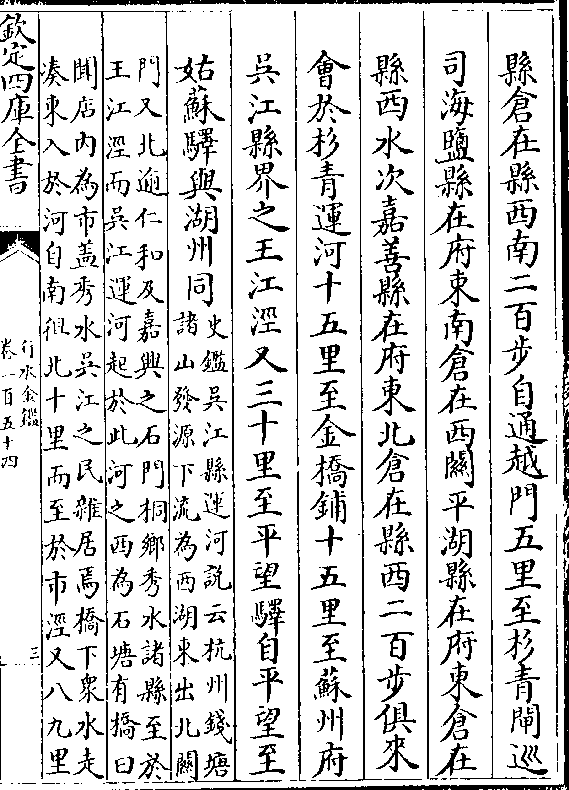 縣倉在縣西南二百步自通越門五里至杉青閘巡
司海鹽縣在府東南倉在西關平湖縣在府東倉在
縣西水次嘉善縣在府東北倉在縣西二百步俱來
會於杉青運河十五里至金橋鋪十五里至蘇州府
吳江縣界之王江涇又三十里至平望驛自平望至
姑蘇驛與湖州同
史鑑吳江縣運河說云杭州錢塘
諸山發源下流為西湖東出北關
門又北迤仁和及嘉興之石門桐鄉秀水諸縣至於
王江涇而吳江運河起於此河之西為石塘有橋曰
聞店內為市蓋秀水吳江之民雜居焉橋下衆水走
湊東入於河自南徂北十里而至於市涇又八九里
欽定四庫全書
行水金鑑
卷一百五十四
三